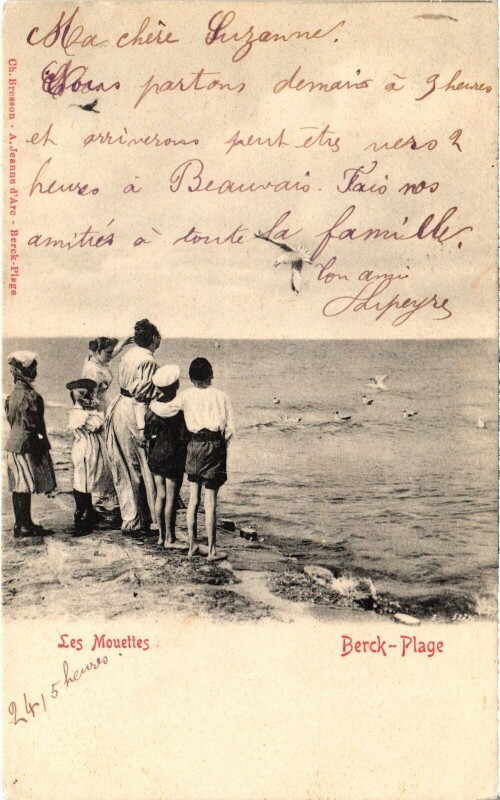 Ma chère Suzanne.
Nous partons demain à 9 heures
et arriverons peut être vers 2
heures à Beauvais. Fais nos
amitiés à toute la famille.
Ton ami
Ch. Bresson - A. Jeanne d'Arc - Berck-Plage
Les Mouettes
Berck-Plage
24/5 heures.